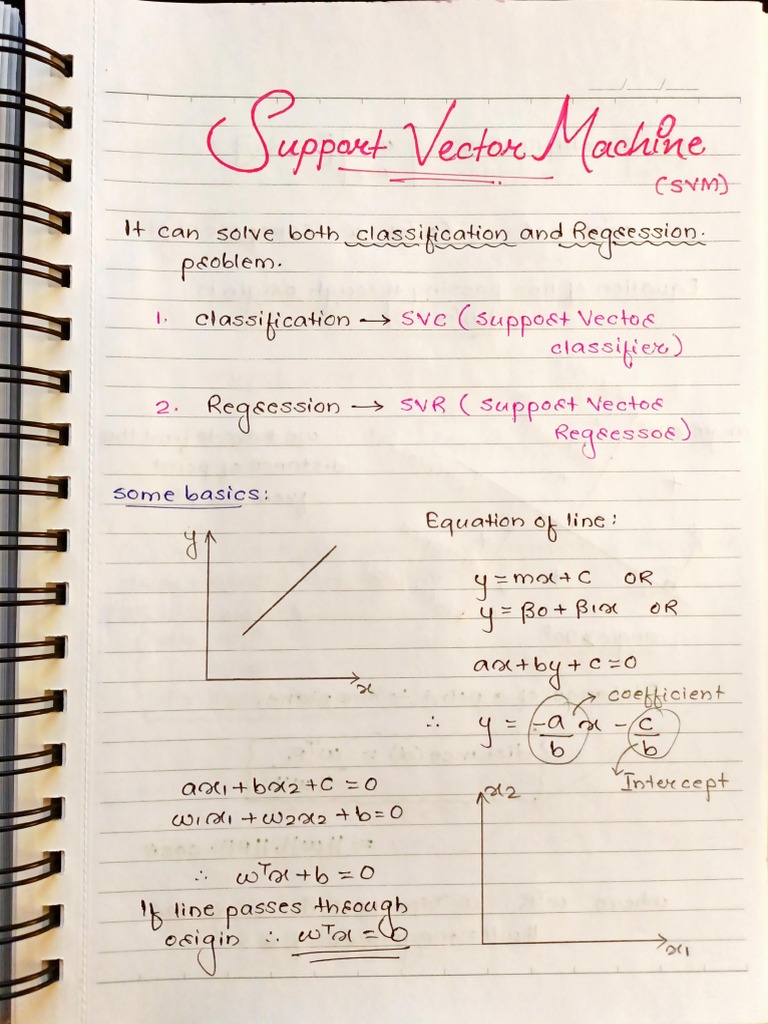 Support Vector Machine
(SVM)
It can solve both classification and Regression.
problem.
1. classification → SVC (Support Vector
classifier)
2. Regression → SVR (Support Vector
Regressor)
some basics:
y
x
Equation of line:
y = mx + c OR
y = β0 + β1x OR
ax + by + c = 0
coefficient
∴ y = -a/b x - c/b
Intercept
ax1 + bx2 + c = 0
w1x1 + w2x2 + b = 0
∴ wᵀx + b = 0
If line passes through
origin ∴ wᵀx = 0
x2
x1